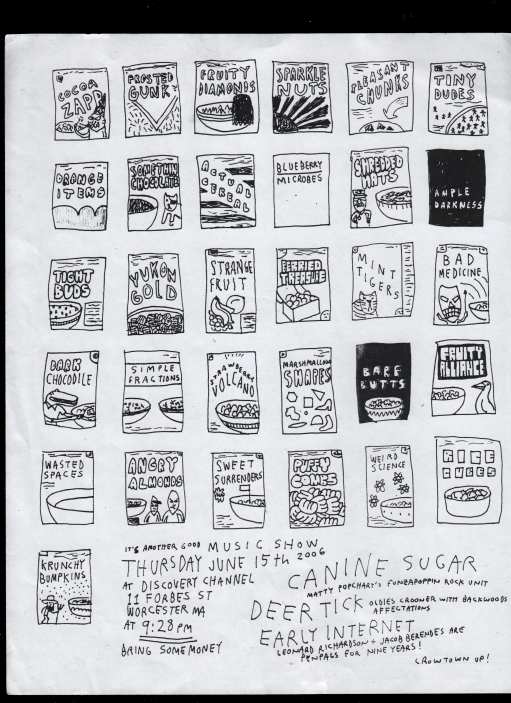 COCOA
ZAPP
FROSTED
GUNK
FRUITY
DIAMONDS
SPARKLE
NUTS
PLEASANT
CHUNKS
TINY
DUDES
ORANGE
ITEMS
SOMETHIN
CHOCOLATE
ACTUAL
CEREAL
BLUEBERRY
MICROBES
SHREDDED
AMPLE
DARKNESS
TIGHT
BUDS
YUKON
GOLD
STRANGE
FRUIT
BERRIED
TREASURE
MINT
TIGERS
BAD
MEDICINE
DARK
CHOCODILE
SIMPLE
FRACTIONS
STRAWBERRY
VOLCANO
MARSHMALLOW
SHAPES
BARE
BUTTS
FRUITY
ALLIANCE
WASTED
SPACES
ANGRY
ALMONDS
SWEET
SURRENDERS
PUFFY
COMBS
WEIRD
SCIENCE
RICE
CUBES
KRUNCHY
BUMPKINS
IT'S ANOTHER GOOD MUSIC SHOW
THURSDAY JUNE 15th 2006
AT DISCOVERY CHANNEL
11 FORBES ST
WORCESTER MA
AT 9:28 PM
BRING SOME MONEY
CANINE SUGAR
MATTY POPCHART'S FUNZAPOPPIN ROCK UNIT
DEER TICK OLDIES CROONER WITH BACKWOODS
AFFECTATIONS
EARLY INTERNET
LEONARD RICHARDSON + JACOB BERENDES ARE
PENPALS FOR NINE YEARS!
CROWTOWN UP!